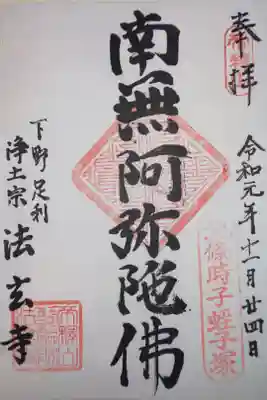 奉拝
令和元年十一月廿四日
南無阿弥陀佛
下野足利
浄土宗
法玄寺
時子蛭子塚